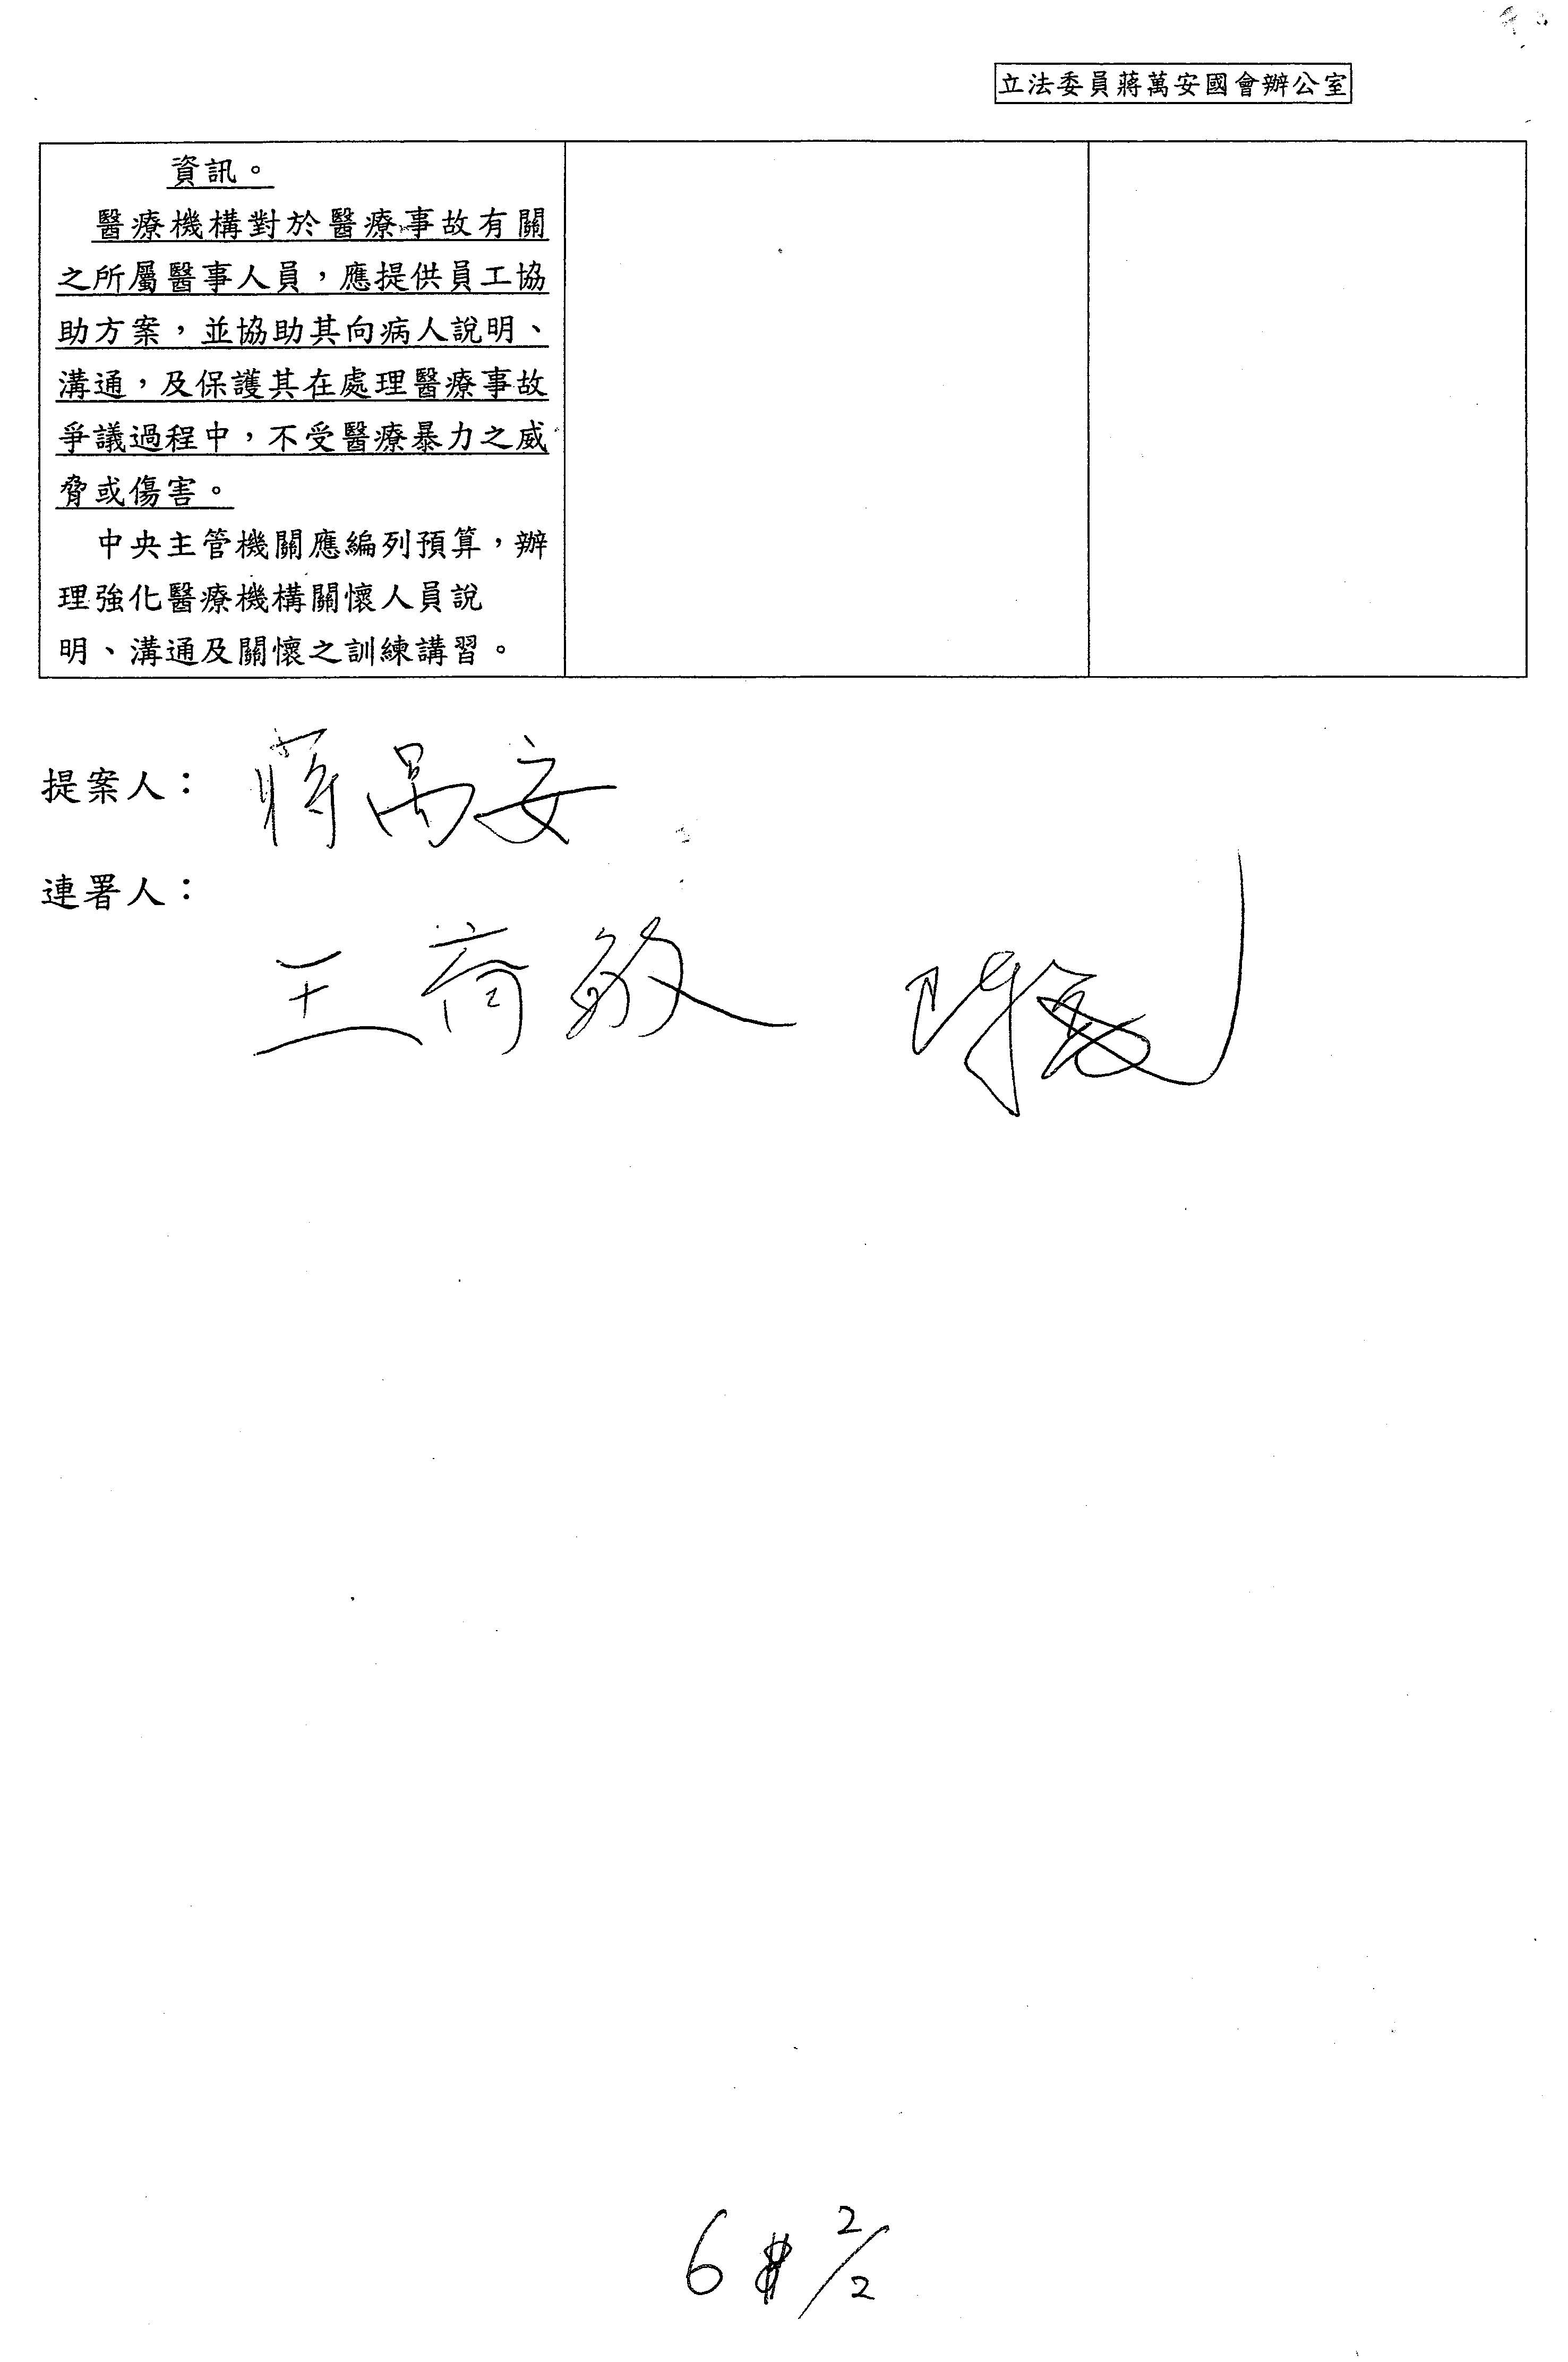 立法委員蔣萬安國會辦公室
資訊。
醫療機構對於醫療事故有關
之所屬醫事人員，應提供員工協
助方案，並協助其向病人說明、
溝通，及保護其在處理醫療事故
爭議過程中，不受醫療暴力之威
脅或傷害。
中央主管機關應編列預算，辦
理強化醫療機構關懷人員說
明、溝通及關懷之訓練講習。
提案人：蔣萬安
連署人：
王育敏
6 2/2